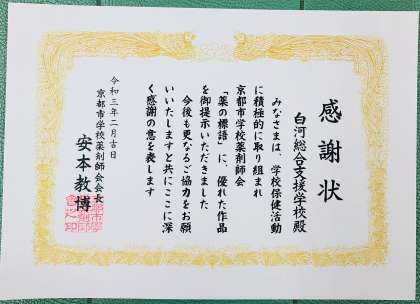 感謝状
白河総合支援学校殿
みなさまは、学校保健活動
に積極的に取り組まれ
京都市学校薬剤師会
「薬の標語」に、優れた作品
を御提示いただきました
今後も更なるご協力をお願
いいたしますと共にここに深
く感謝の意を表します
令和三年二月吉日
京都市学校薬剤師会会長
安本教博